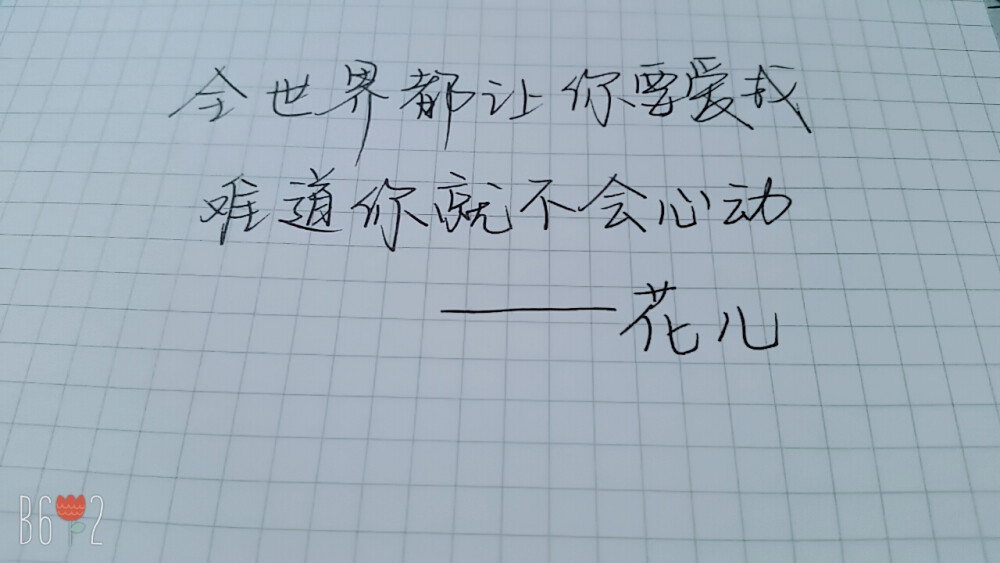 全世界都让你要爱我
难道你就不会心动
——花儿
B612